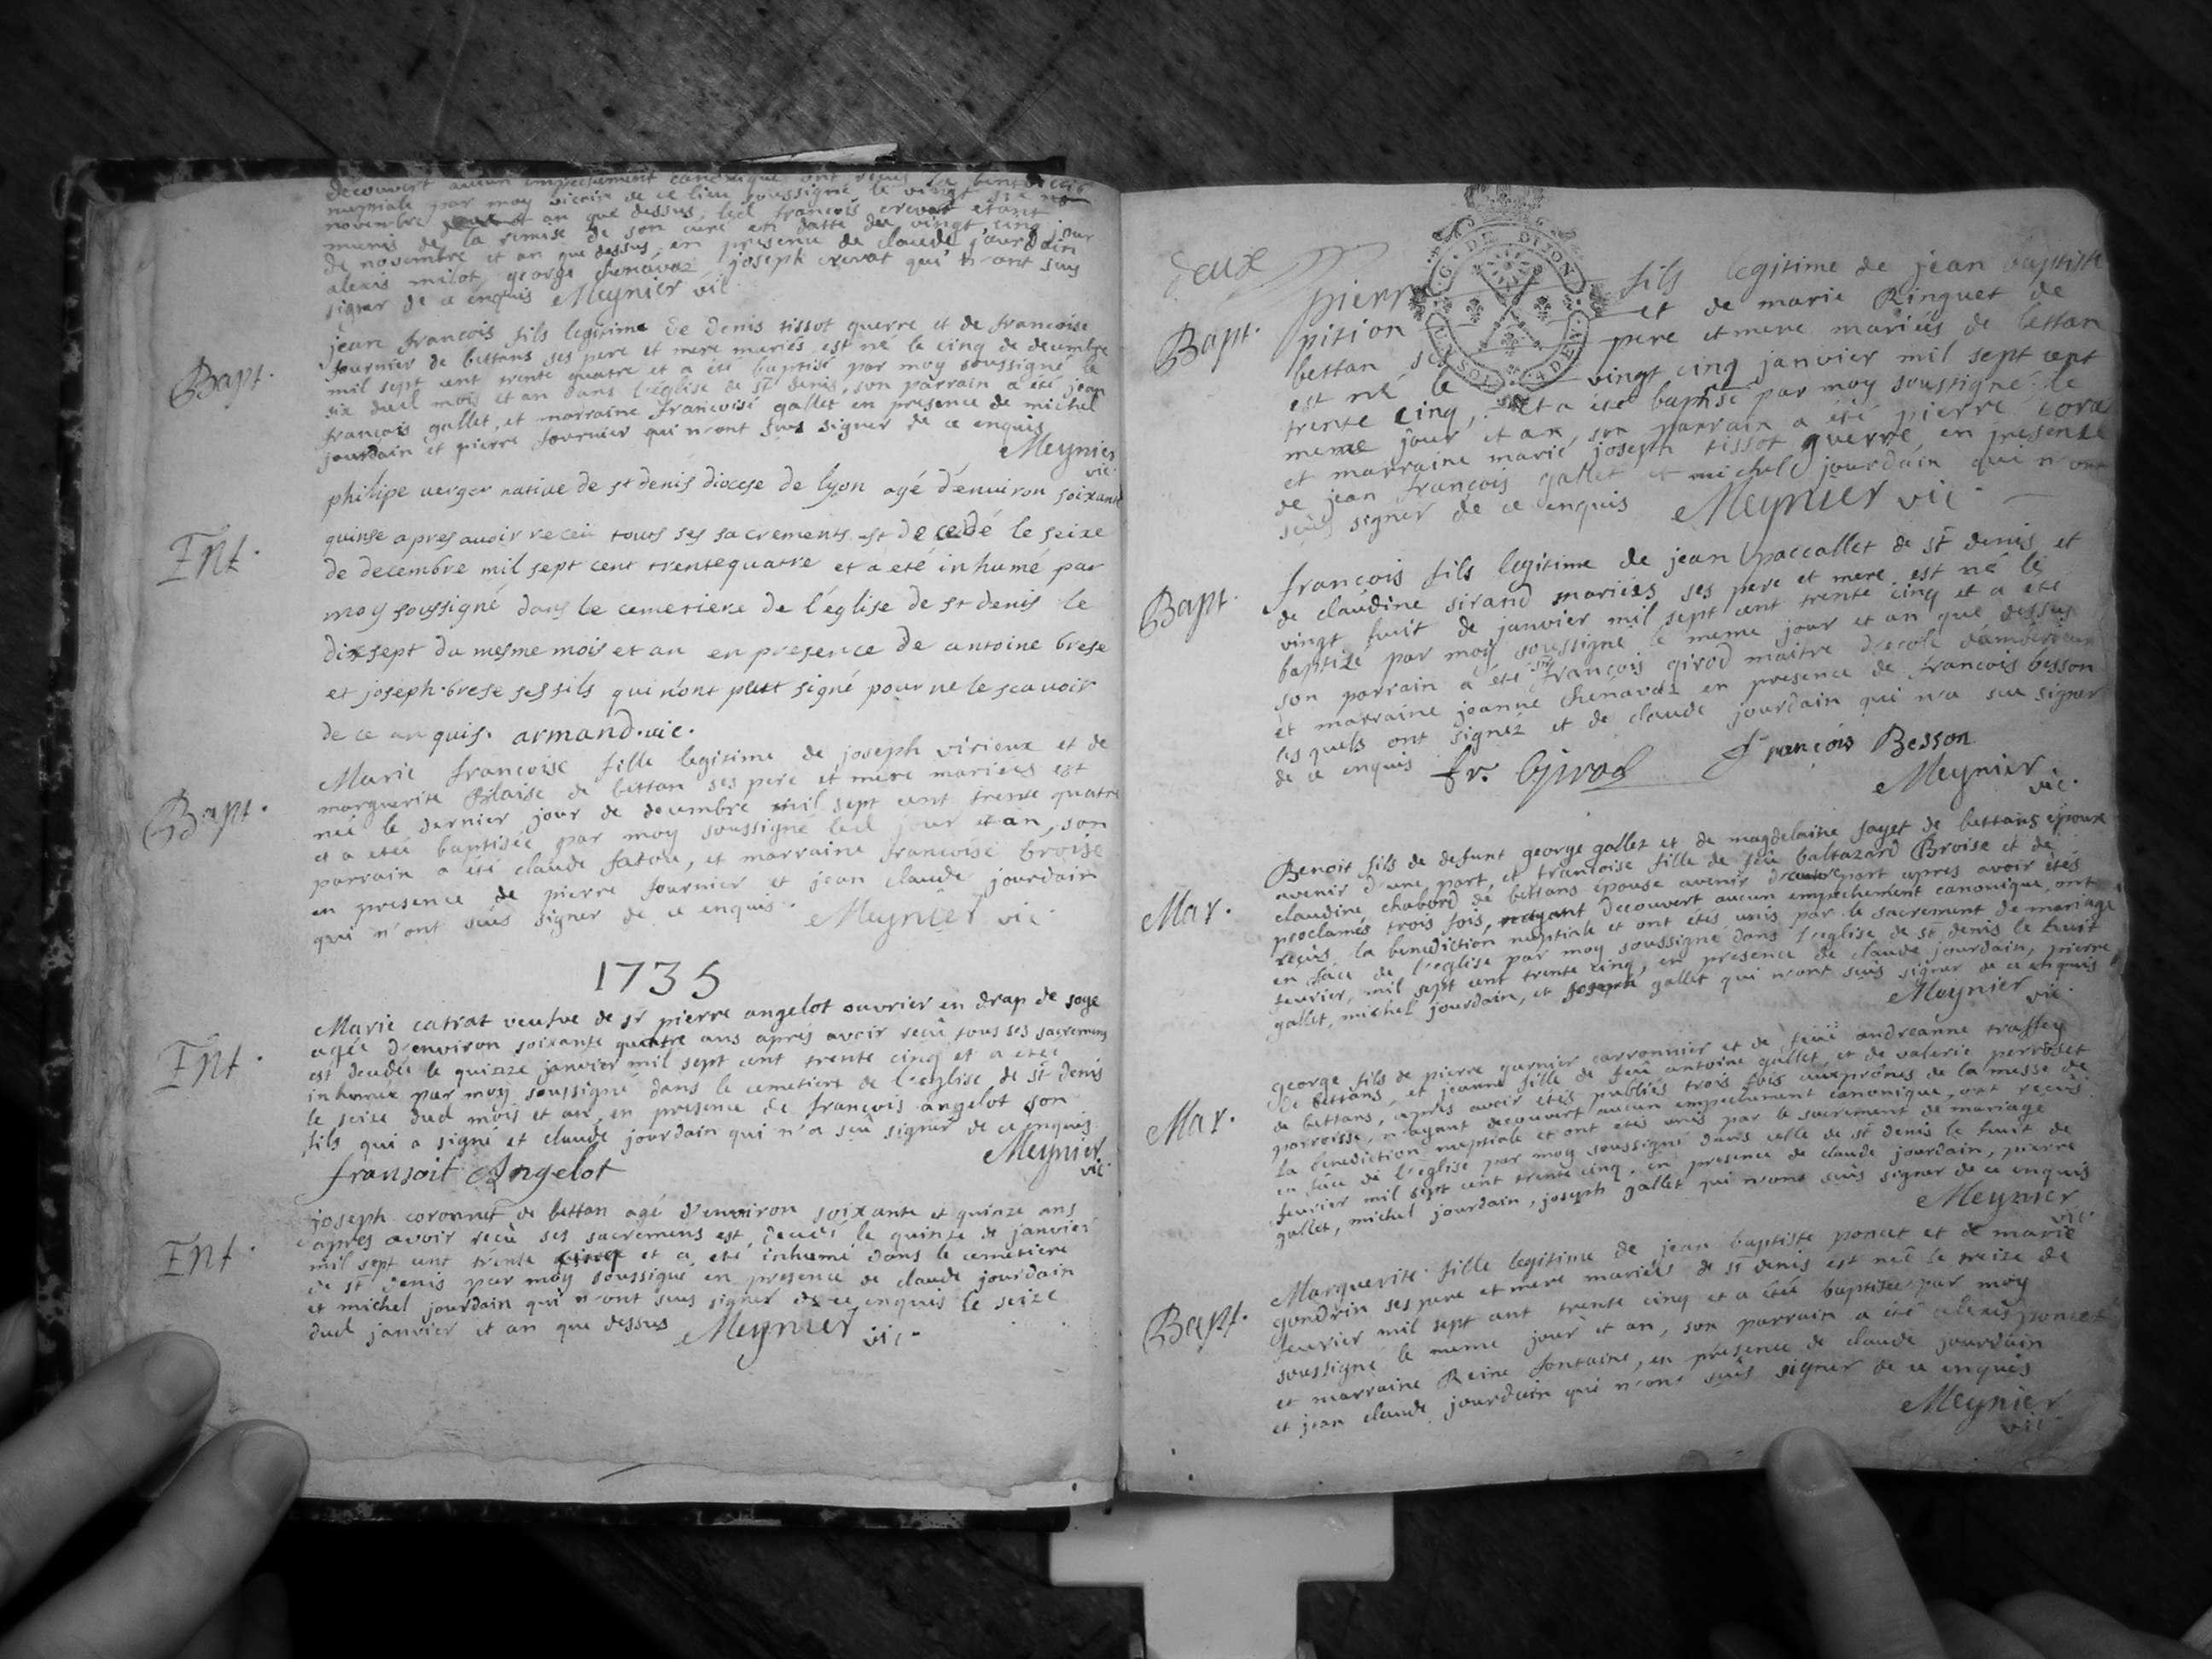 decouvert aucun empechement canonique ont reçus la benediction
nuptiale par moy vicaire de ce lieu soussigné le vingt six
novembre et an que dessus, led françois crevat etant
munis de la remise de son curé en datte du vingt cinq jour
de novembre et an que dessus, en presence de claude jourdain
alexis milot, george chenavaz joseph crevat qui n'ont sus
signer de ce enquis Meynier vic
Bapt.
jean françois fils legitime de denis tissot guerre et de françoise
fournier de bettans ses pere et mere mariés est né le cinq de decembre
mil sept cent trente quatre et a été baptisé par moy soussigné le
six dud mois et an dans l'eglise de st denis, son parrain a été jean
françois gallet, et marraine françoise gallet en presence de michel
jourdain et pierre fournier qui n'ont sus signer de ce enquis
Meynier
vic
Ent.
philipe verger native de st denis diocese de lyon agé d'environ soixante
quinse apres avoir receu tous ses sacrements est decedé le seixe
de decembre mil sept cent trentequatre et a été inhumé par
moy soussigné dans le cemetiere de l'eglise de st denis le
dixsept du mesme mois et an en presence de antoine brese
et joseph brese ses fils qui n'ont peut signé pour ne le sçavoir
de ce anquis. armand. vic.
Bapt.
Marie françoise fille legitime de joseph virieux et de
marguerite Blaise de bettan ses pere et mere mariées est
née le dernier jour de decembre mil sept cent trente quatre
et a eteé baptisée par moy soussigné led jour et an, son
parrain a été claude fatou, et marraine françoise broise
en presence de pierre fournier et jean claude jourdain
qui n'ont seus signer de ce enquis. Meynier vic
1735
Ent.
Marie catrat veufve de sr pierre angelot ouvrier en drap de soye
agée d'environ soixante quatre ans aprés avoir reçu tous ses sacremens
est decedée le quinze janvier mil sept cent trente cinq et a eteé
inhumée par moy soussigné dans le cemetiere de l'eglise de st denis
le seize dud mois et an, en presence de françois angelot son
fils qui a signé et claude jourdain qui n'a seu signer de ce enquis
Meynier
vic
fransoit Angelot
Ent.
joseph coronnet de bettan agé d'environ soixante et quinze ans
apres avoir reçu ses sacremens est decedé le quinze de janvier
mil sept cent trente cinq et a été inhumé dans le cemetiere
de st denis par moy soussigné en presence de claude jourdain
et michel jourdain qui n'ont sus signer de ce enquis le seize
dud janvier et an que dessus Meynier vic.
deux
G. DE DIJON
Bapt.
pierre fils legitime de jean baptiste
pition et de marie Ringuet de
bettan ses pere et mere mariés de bettan
est né le vingt cinq janvier mil sept cent
trente cinq, et a été baptisé par moy soussigné le
meme jour et an, son parrain a été pierre
et marraine marie joseph tissot guerre, en presence
de jean françois gallet et michel jourdain qui n'ont
seus signer de ce enquis Meynier vic.
Bapt.
françois fils legitime de jean paccallet de st denis et
de claudine sirand mariées ses pere et mere est né le
vingt huit de janvier mil sept cent trente cinq et a été
baptizé par moy soussigné le meme jour et an que dessus
son parrain a été sr françois girod maitre d'ecole
et marraine jeanne chenavaz en presence de françois besson
lesquels ont signéz et de claude jourdain qui n'a sceu signer
de ce enquis fr. Girod françois Besson
Meynier
vic.
Mar.
Benoit fils de defunt george gallez et de magdelaine sayet de bettans epoux
avenir d'une part et françoise fille de feü baltazard Broise et de
claudine chabord de bettans epouse avenir d'autre part apres avoir étés
proclamés trois fois, n'ayant decouvert aucun empechement canonique, ont
reçus la benediction nuptiale et ont étés unis par le sacrement de mariage
en face de l'eglise par moy soussigné dans l'eglise de st denis le huit
fevrier, mil sept cent trente cinq, en presence de claude jourdain, pierre
gallet, michel jourdain, et joseph gallet qui n'ont seus signer de ce enquis
Meynier
vic.
Mar.
george fils de pierre garnier carronnier et de feuë andreanne traffey
de bettans, et jeanne fille de feu antoine gallet, et de valerie perroset
de bettans, apres avoir étés publiés trois fois aux prônes de la messe de
parroisse, n'ayant decouvert aucun empechement canonique, ont reçus
la benediction nuptiale et ont etés unis par le sacrement de mariage
en face de l'eglise par moy soussigné dans celle de st denis le huit de
fevrier mil sept cent trente cinq, en presence de claude jourdain, pierre
gallet, michel jourdain, joseph gallet qui n'ont seus signer de ce enquis
Meynier
vic.
Bapt.
Marguerite fille legitime de jean baptiste poncet et de marie
gondrin ses pere et mere mariées de st denis est neé le treize de
fevrier mil sept cent trente cinq et a eteé baptisée par moy
soussigné le meme jour et an, son parrain a été alexis poncet
et marraine Reine fontaine, en presence de claude jourdain
et jean claude jourdain qui n'ont seus signer de ce enquis
Meynier
vic.